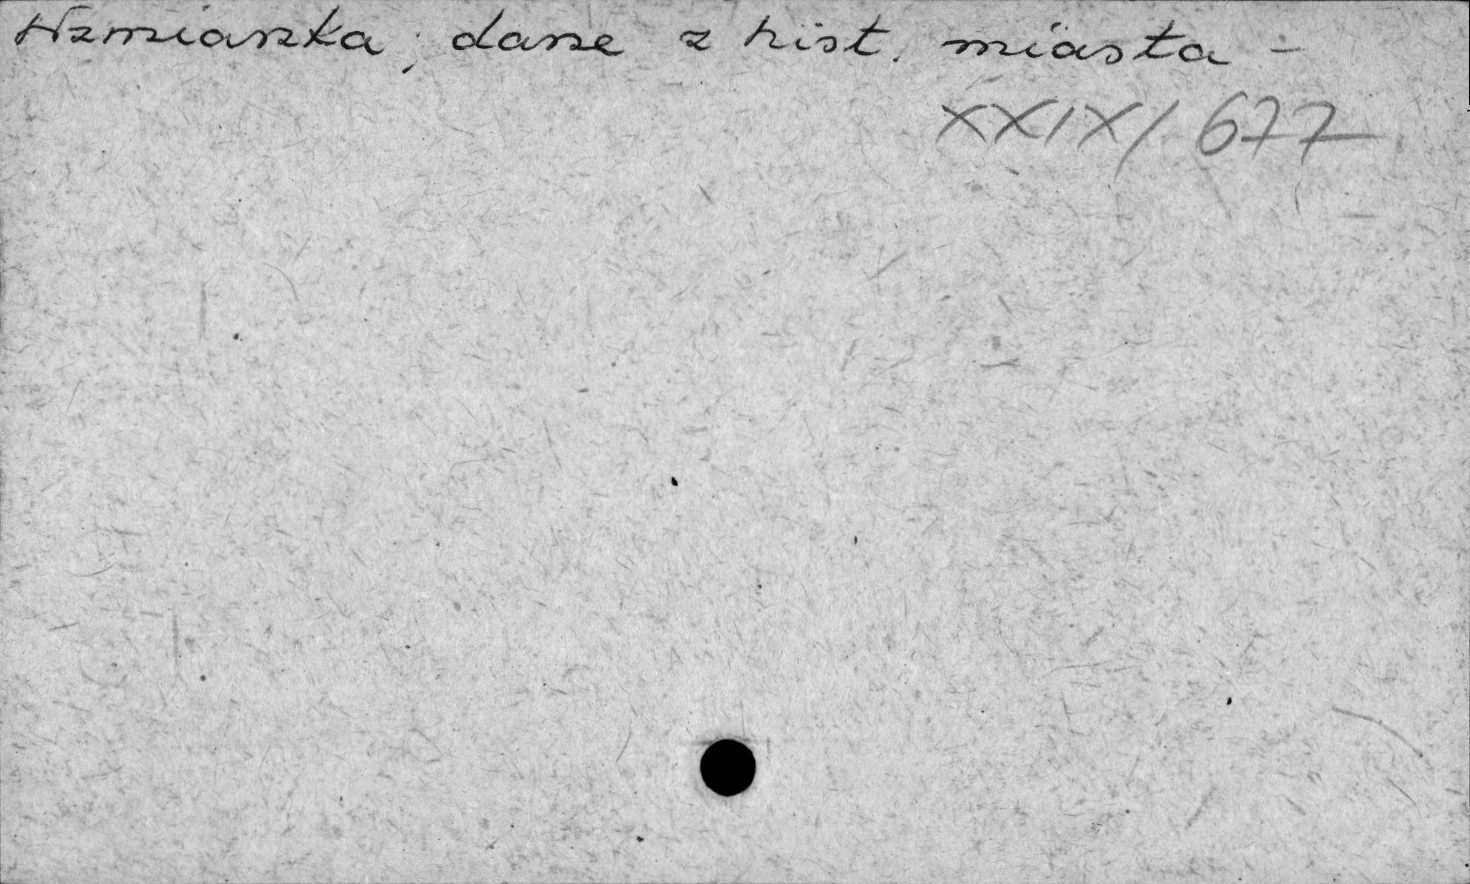 Wzmianka; dane z hist. miasta –
XXIX/677